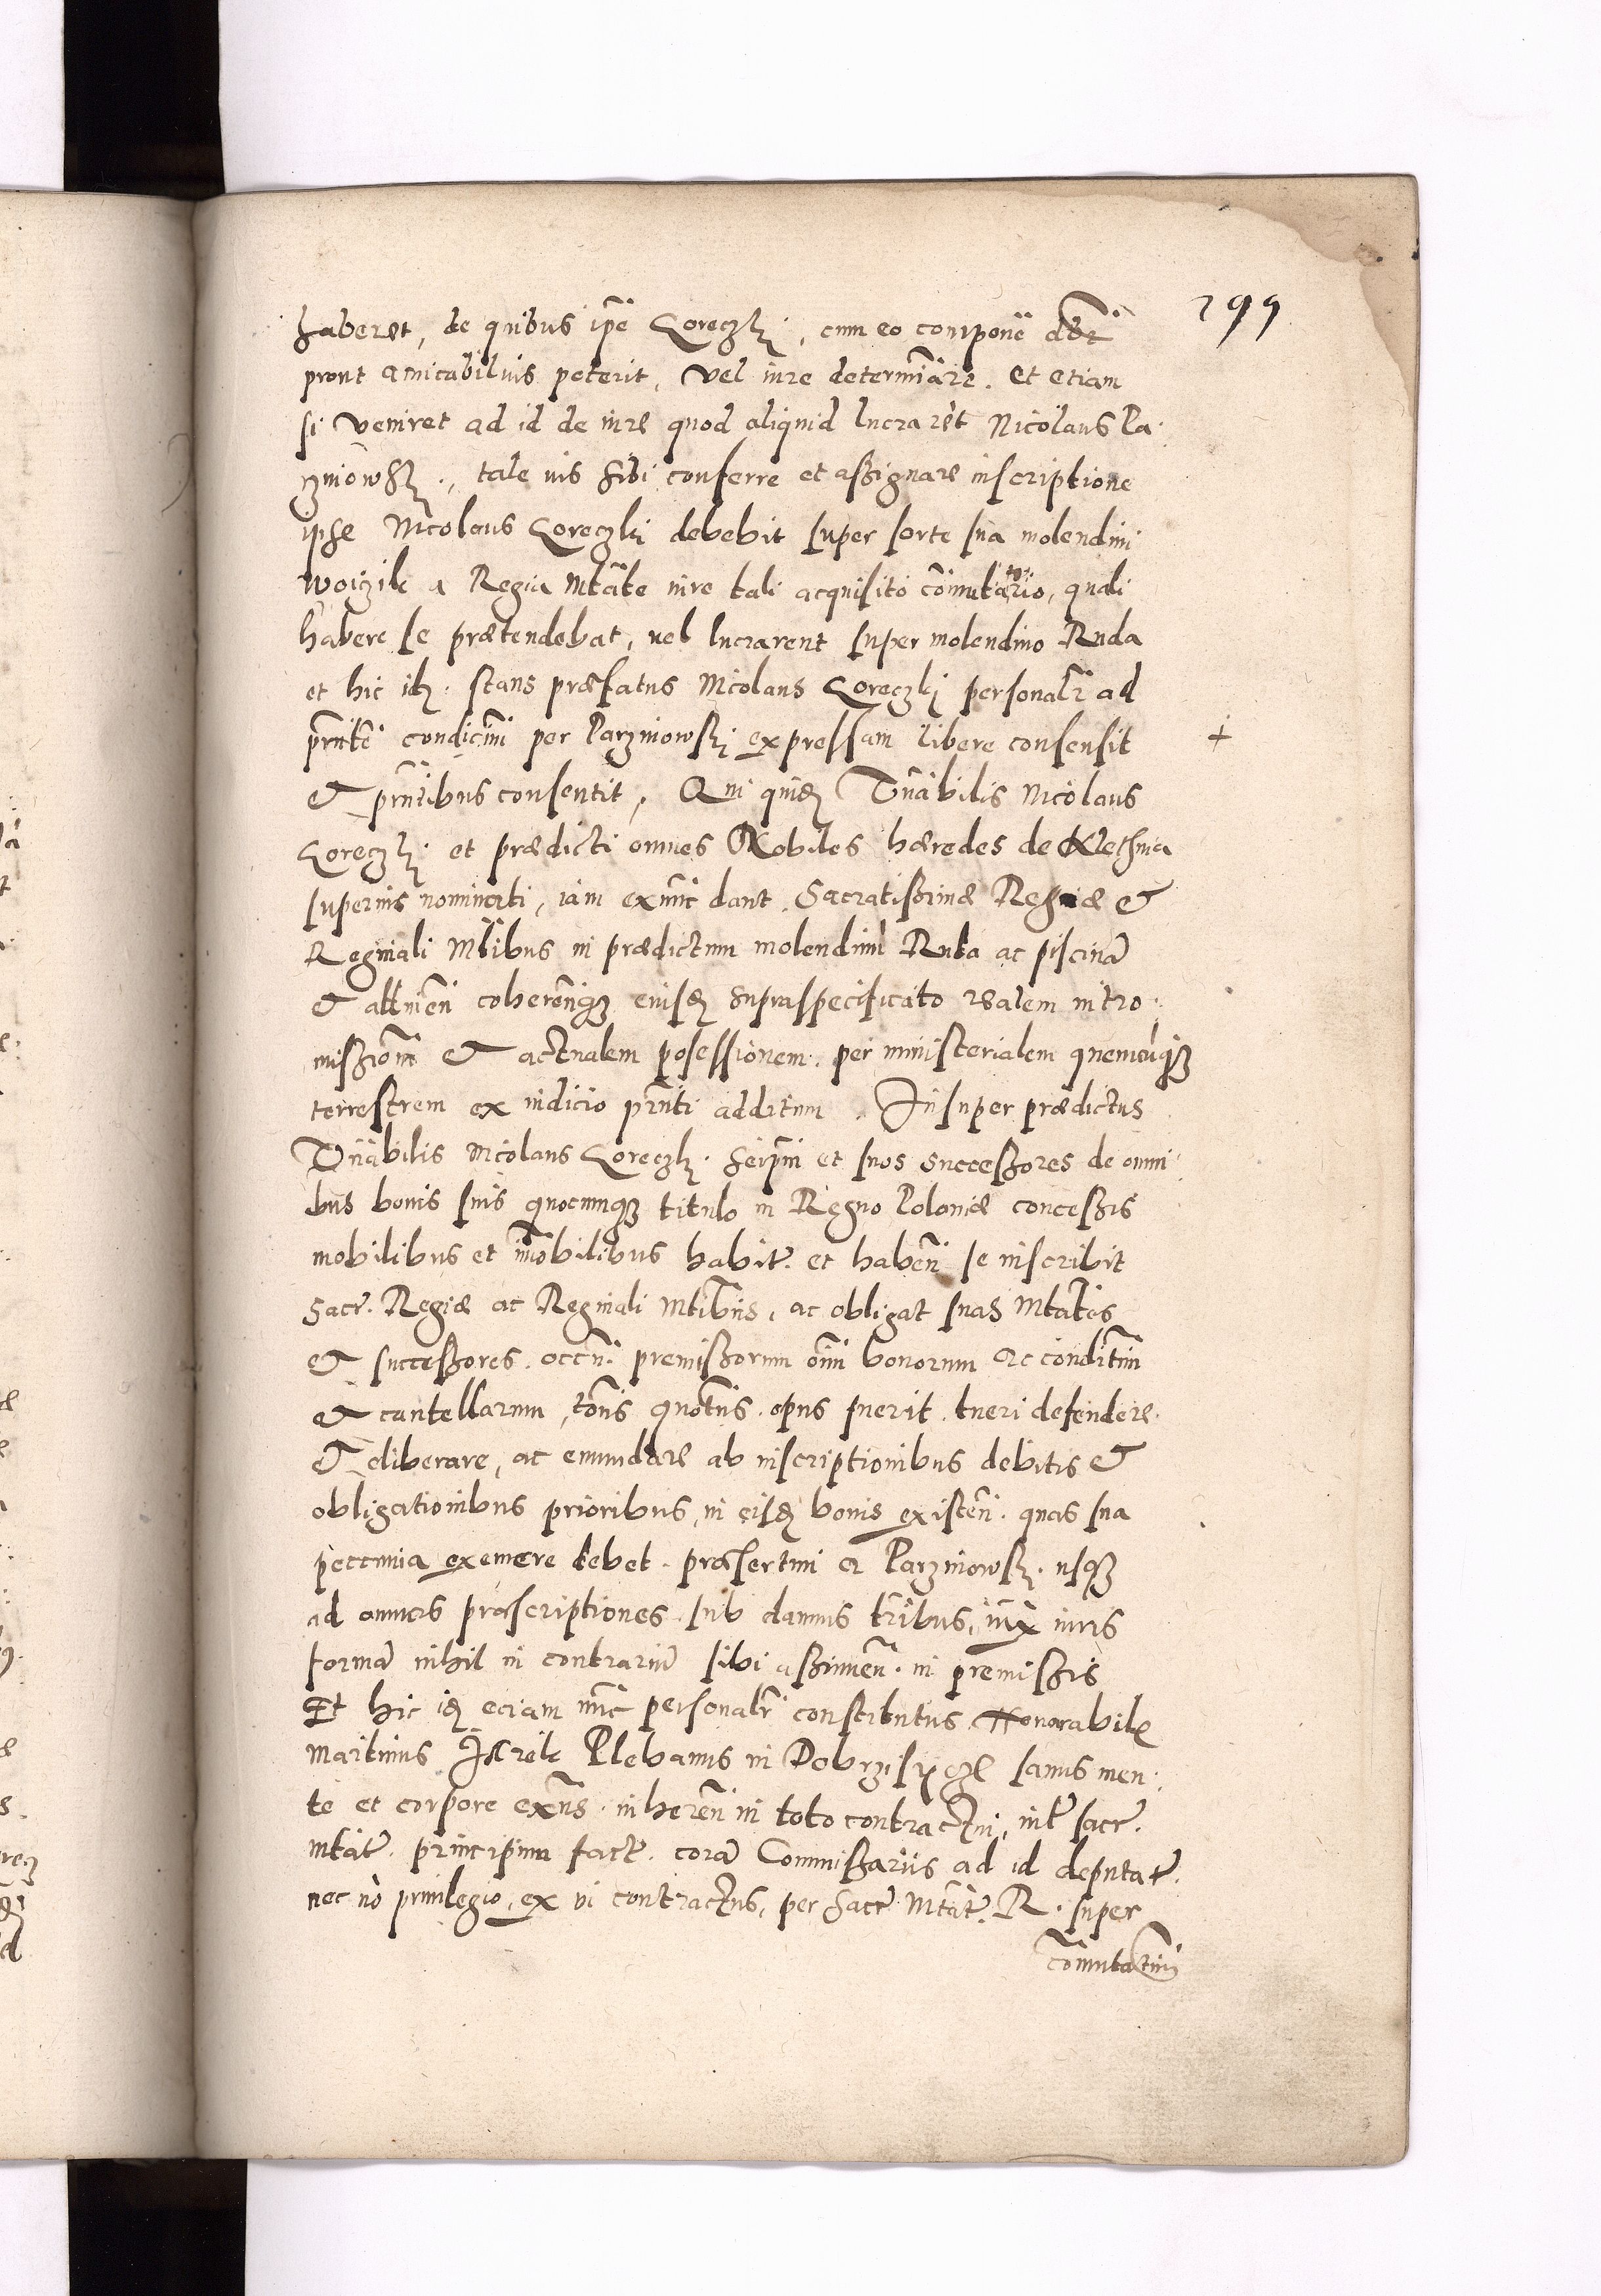 299
haberet, de quibus ipe Coreczki, cum eo componẽ debt
prout amicabilius poterit, vel iure determinare. et etiam
si veniret ad id de iure quod aliquid lucraret Nicolaus Pa
rzniowski, tale ius sibi conferre et assignare inscriptione
ipse Nicolaus Coreczki debebit super sorte sua molendini
woiczik a Regia Mtate iure tali acquisito comutario, quali
habere se prætendebat, vel lucrarent super molendino Ruda
et hic idz. stans præfatus Nicolaus Coreczki personalr ad
prntẽ condicnni per Parzniowski expressam libere consensit
et prntibus consentit, Qui quidz Vnabilis Nicolaus
Coreczki et prædicti omnes Nobiles hæredes de Klethnia
superius nominati, iam exnunc dant Sacratissimæ Regiæ et
Reginali Mtibus in prædictum molendinũ Ruda ac piscinã
et attinen coherenqz eiusdz supraspecificato realem intro
missionẽ et actualem posessionem per ministerialem quemcuqz
terrestrem ex iudicio prnti additum. Insuper prædictus
Vnabilis Nicolaus Coreczki seipm et suos successores de omni
bus bonis suis quocunqz titulo in Regno Poloniæ concessis
mobilibus et immobilibus habit. et haben se inscribit
Sacr. Regiæ ac Reginali Mtibus, ac obligat suas Mtates
et successores. occni. premissorum oim bonorum ac conditm
et cautellarum, tons quotns opus fuerit tueri defendere
et eliberare, ac emundare ab inscriptionibus debitis et
obligationibus prioribus, in eisdz bonis existen. quas sua
peccunia exemere debet præsertim a Parzniowski. usqz
ad annuas præscriptiones sub damnis tribus, iux iuris
formã nihil in contrariũ sibi assumen. in premissis
Et hic idz eciam nunc personalr constitutus Honorabilis
Martinus Plebanus in sanus men
te et corpore exns. inheren in toto contractui, intr sacr.
mtat. principum fact. corã Commissariis ad id deputat.
nec nõ priuilegio, ex vi contractus, per sacr Mtat. R. super
comutatini
+